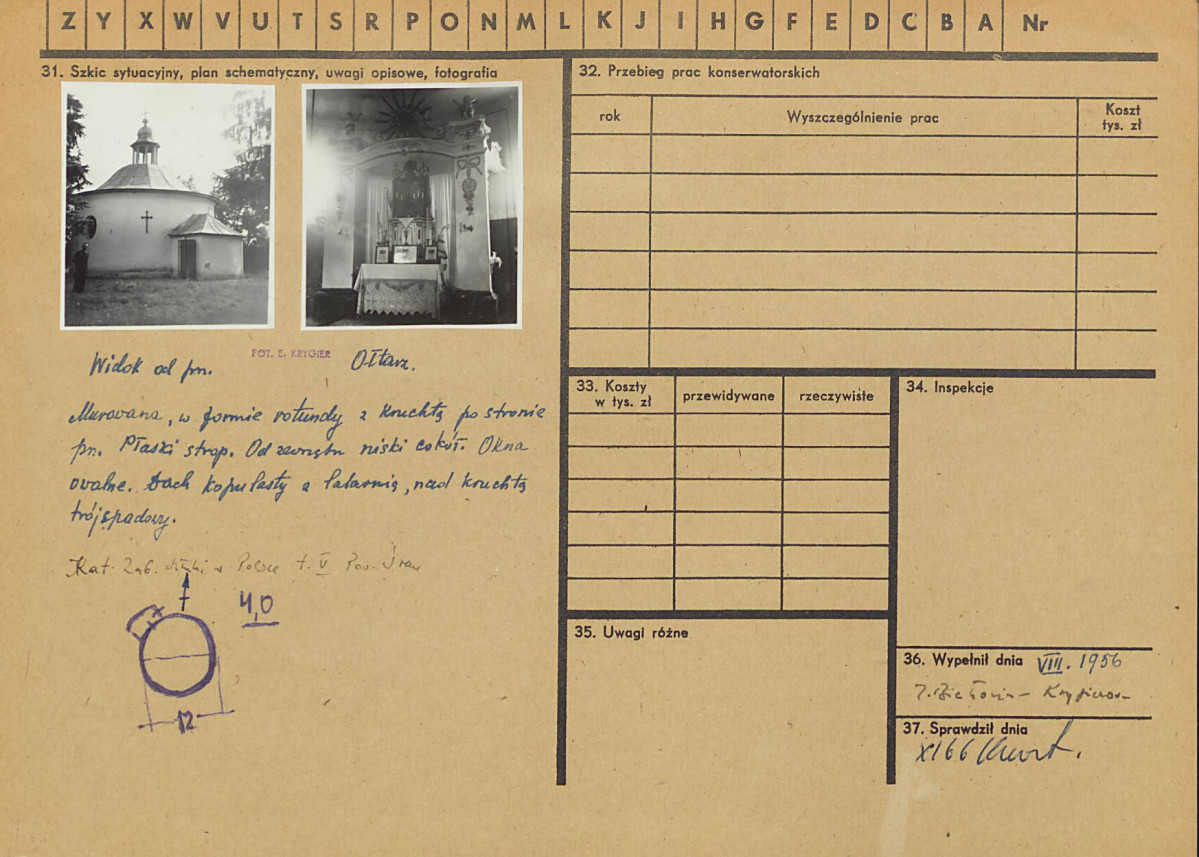 Z Y X W V U T S R P O N M L K J I H G F E D C B A Nr
31. Szkic sytuacyjny, plan schematyczny, uwagi opisowe, fotografia
Widok od pn.
FOT. E. KRYGIER
Ołtarz.
Murowana, w formie rotundy z kruchtą po stronie
pn. Płaski strop. Od zewnątrz niski cokół. Okna
owalne. Dach kopulasty z latarnią, nad kruchtą
trójspadowy.
Kat. Zab. Sztuki w Polsce t. V Pow.
4,0
12
32. Przebieg prac konserwatorskich
rok
Wyszczególnienie prac
Koszt
tys. zł
33. Koszty
w tys. zł
przewidywane
rzeczywiste
34. Inspekcje
35. Uwagi różne
36. Wypełnił dnia VIII. 1956
37. Sprawdził dnia
XI 66